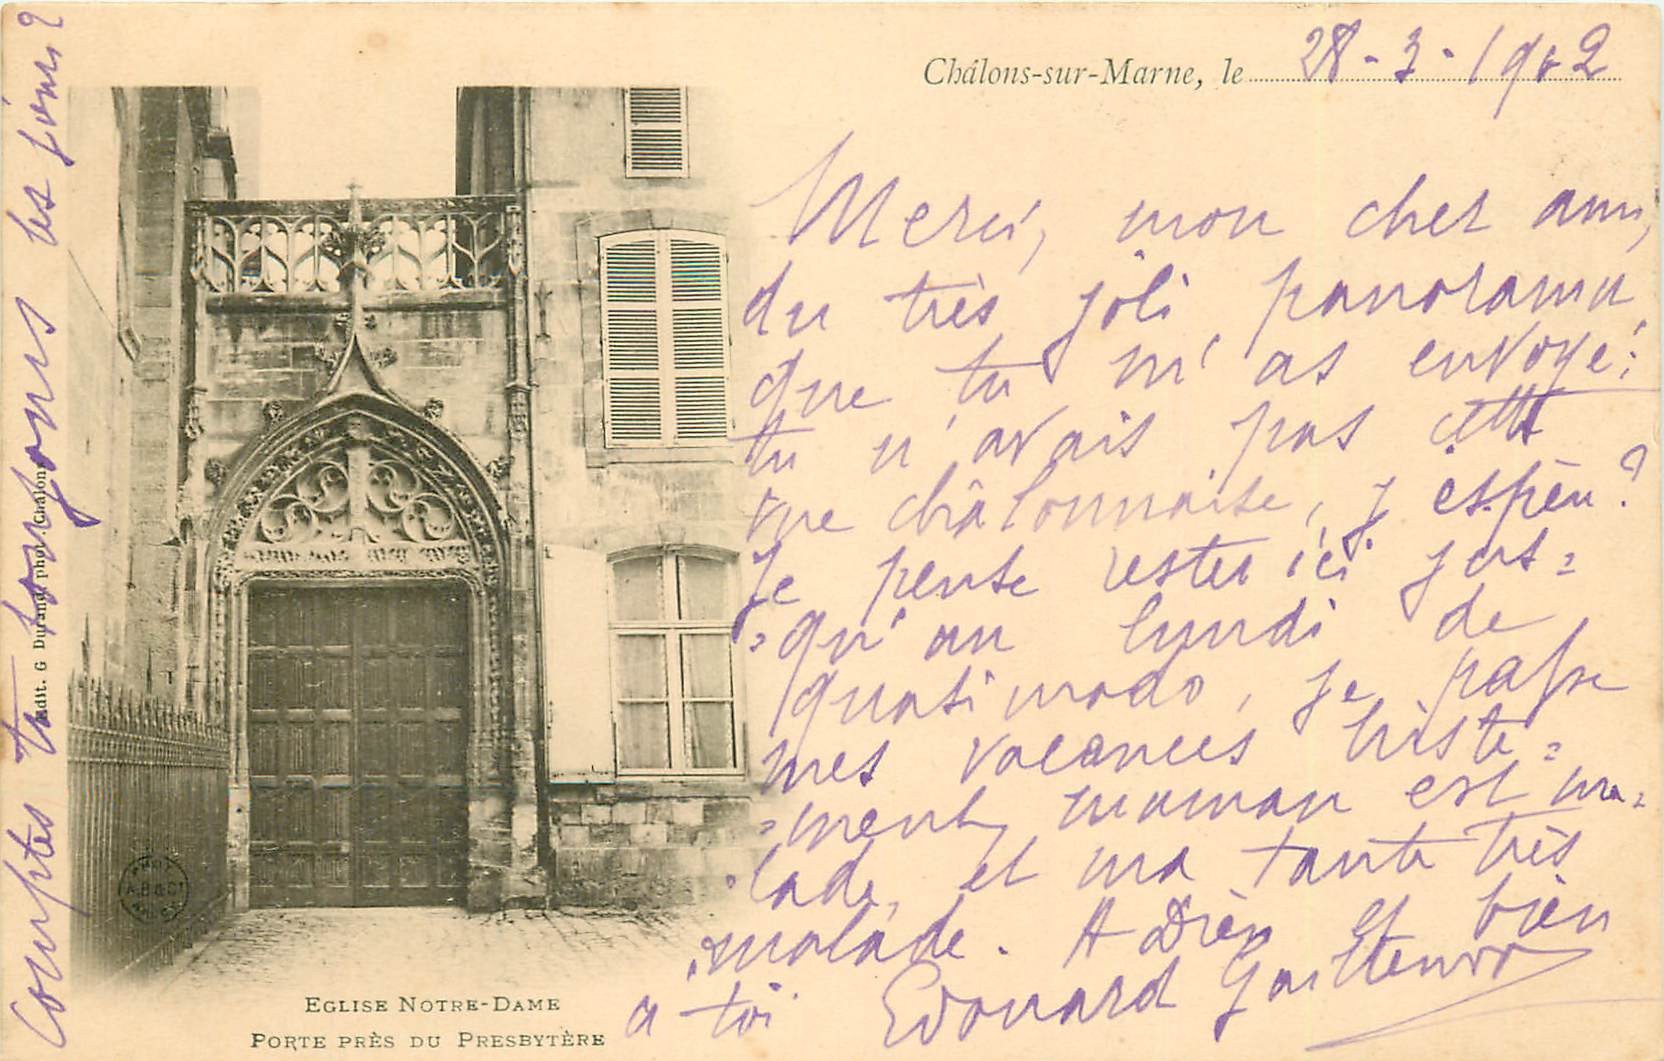 Châlons-sur-Marne, le 28-3-1902
Merci, mon cher ami,
du très joli panorama
que tu m'as envoyé:
tu n'avais pas cette
vue châlonnaise, j'espère?
Je pense rester ici jus=
=qu'au lundi de
quasimodo, je passe
mes vacances triste=
=ment, maman est ma=
=lade, et ma tante très
malade. A Dieu et bien
à toi. Edouard
Comptes tu toujours les jours?
Edit. G Durand phot. Châlons
EGLISE NOTRE-DAME
PORTE PRÈS DU PRESBYTÈRE